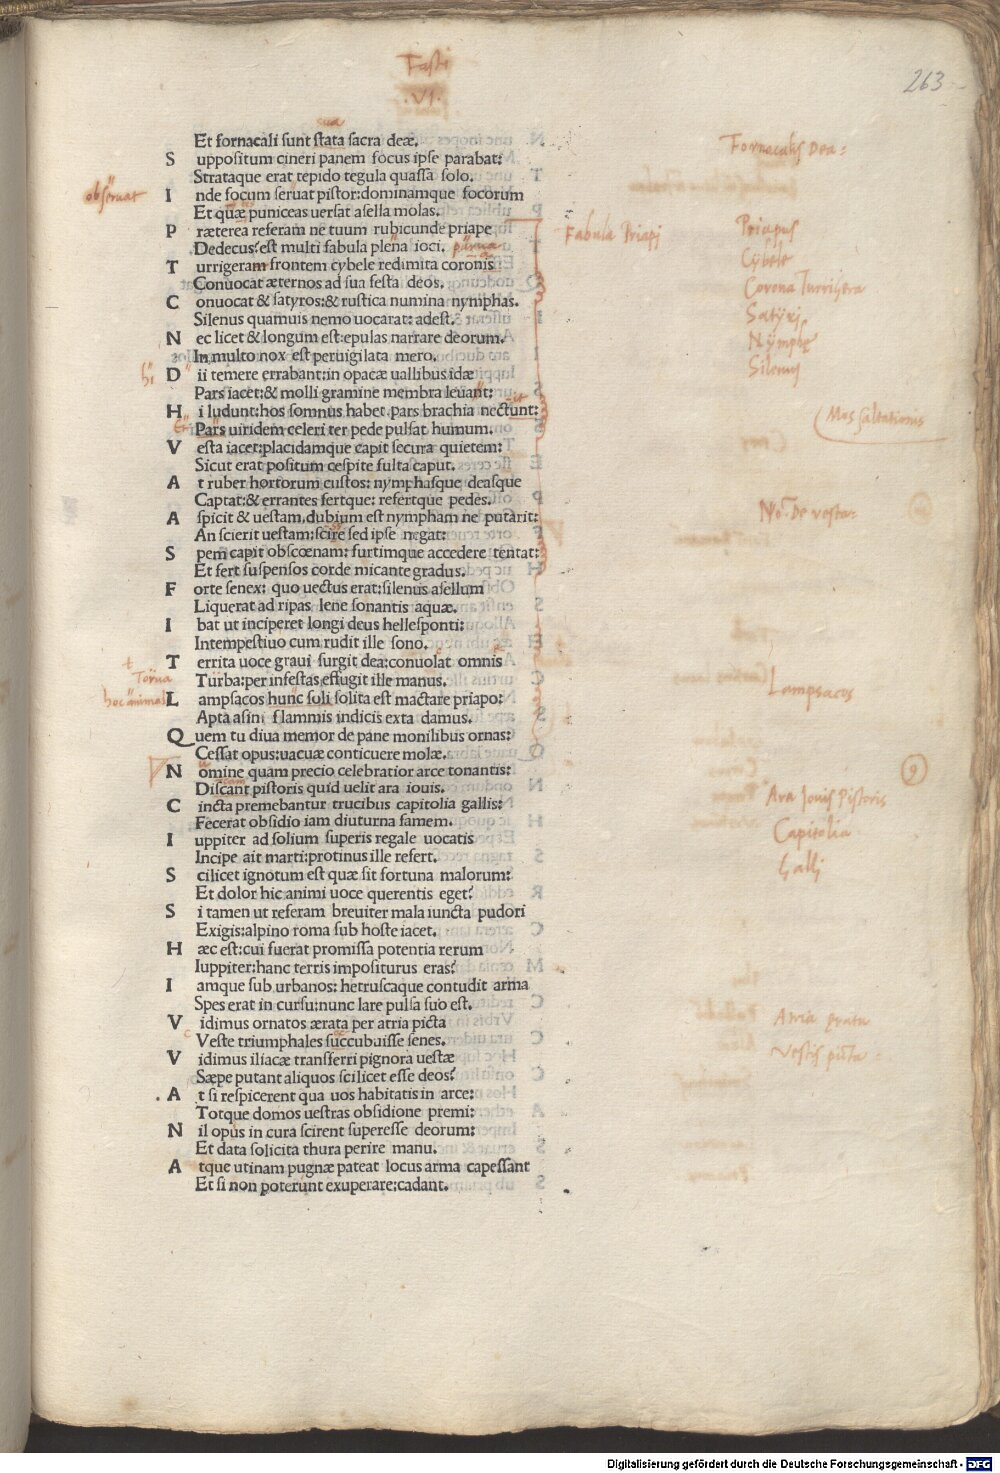 Fasti
.VI.
263
sua
Et fornacali sunt stata sacra deæ.
Fornacalis Dea:
S uppositum cineri panem focus ipse parabat:
Strataque erat tepido tegula quassa solo.
obseruat
I nde focum seruat pistor:dominamque focorum
Et quæ puniceas uersat asella molas.
P ræterea referam ne tuum rubicunde priape
Fabula Priapi
Priapus
Dedecus?est multi fabula plena ioci.
parua
Cybele
T urrigeram frontem cybele redimita coronis
Conuocat æternos ad sua festa deos.
Corona Turrigera
C onuocat & satyros:& rustica numina nymphas.
Satyri
Silenus quamuis nemo uocarat: adest.
N ec licet & longum est:epulas narrare deorum.
Nymphę
In multo nox est peruigilata mero.
Silenus
hi
D ii temere errabant:in opacæ uallibus idæ
Pars iacet:& molli gramine membra leuant:
H i ludunt:hos somnus habet. pars brachia nectunt:
Mos saltationis
Et
Pars uiridem celeri ter pede pulsat humum.
V esta iacet:placidamque capit secura quietem:
Sicut erat positum cespite fulta caput.
A t ruber hortorum custos: nymphasque deasque
Captat:& errantes fertque: refertque pedes.
A spicit & uestam.dubium est nympham ne putarit:
No. De vesta:
An scierit uestam:scire sed ipse negat:
S pem capit obscœnam: furtimque accedere tentat:
Et fert suspensos corde micante gradus.
F orte senex: quo uectus erat:silenus asellum
Liquerat ad ripas lene sonantis aquæ.
I bat ut inciperet longi deus hellesponti:
Intempestiuo cum rudit ille sono.
T errita uoce graui surgit dea:conuolat omnis
Torua
Turba:per infestas effugit ille manus.
hoc animal
L ampsacos hunc soli solita est mactare priapo:
Lampsacus
Apta asini flammis indicis exta damus.
Q uem tu diua memor de pane monilibus ornas:
Cessat opus:uacuæ conticuere molæ.
N omine quam precio celebratior arce tonantis:
9
Discant pistoris quid uelit ara iouis.
Ara Jouis Pistoris
C incta premebantur trucibus capitolia gallis:
Fecerat obsidio iam diuturna famem.
Capitolia
I uppiter ad solium superis regale uocatis
Incipe ait marti:protinus ille refert.
Galli
S cilicet ignotum est quæ sit fortuna malorum:
Et dolor hic animi uoce querentis eget?
S i tamen ut referam breuiter mala iuncta pudori
Exigis:alpino roma sub hoste iacet.
H æc est:cui fuerat promissa potentia rerum
Iuppiter:hanc terris impositurus eras?
I amque sub urbanos: hetruscaque contudit arma
Spes erat in cursu:nunc lare pulsa suo est.
V idimus ornatos ærata per atria picta
Atria ęrata
Veste triumphales succubuisse senes.
V idimus iliacæ transferri pignora uestæ
Vestis picta
Sæpe putant aliquos scilicet esse deos?
A t si respicerent qua uos habitatis in arce:
Totque domos uestras obsidione premi:
N il opus in cura scirent superesse deorum:
Et data solicita thura perire manu.
A tque utinam pugnæ pateat locus arma capessant
Et si non poterunt exuperare:cadant.
Digitalisierung gefördert durch die Deutsche Forschungsgemeinschaft - DFG